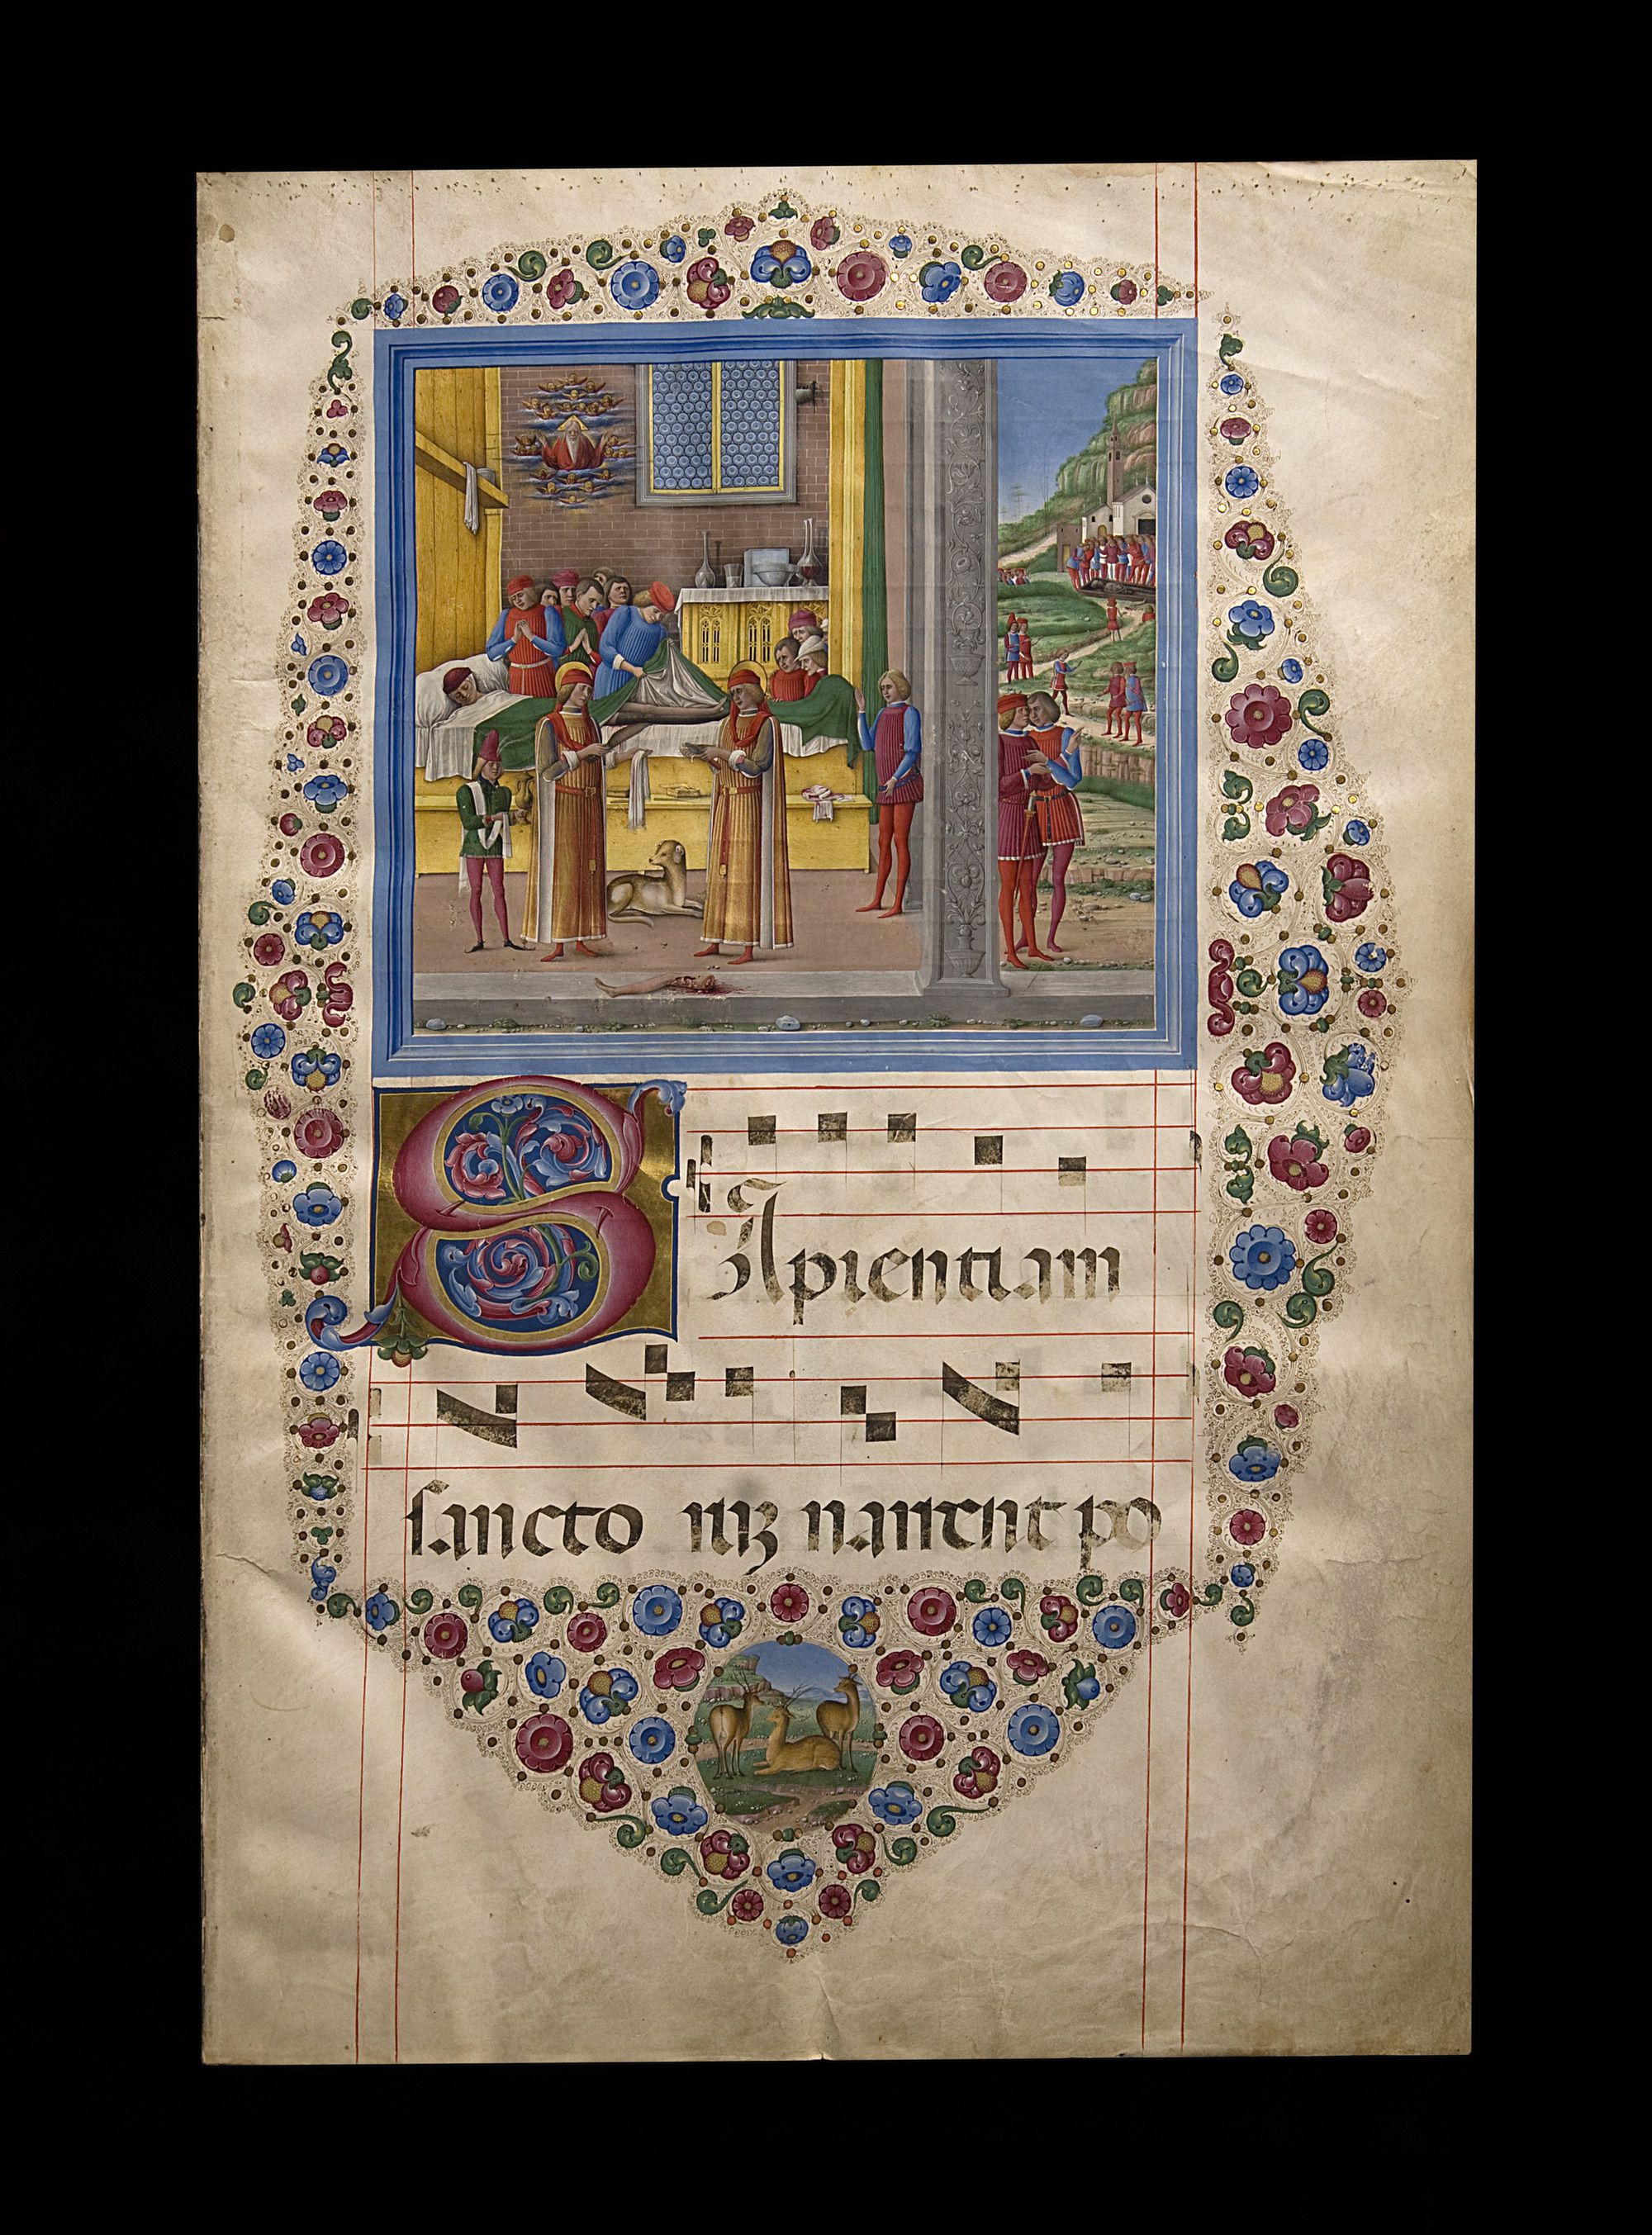 SApientiam
sancto ruꝫ narrent po